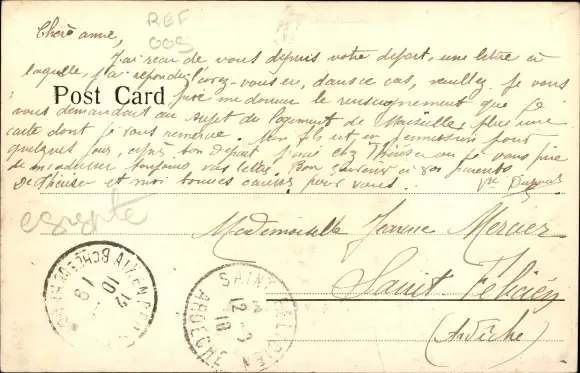 REF
009
Chère amie,
J'ai reçu de vous depuis votre départ, une lettre à
laquelle j'ai répondu, l'avez-vous eu, dans ce cas, veuillez je vous
Post Card
prie me donner le renseignement que je
vous demandant au sujet du logement de Marseille, plus une
carte dont je vous remercie. Mon fils est en permission pour
quelques jours, après son départ j'irai chez Theuser ou je vous prie
de m'adresser toujours vos lettres. Bon souvenir à vos parents
De Theuser et moi bonnes caresses pour vous. Vve
egypte
Mademoiselle Jeanne Mercier
Saint Félicien
(Ardèche)
AIX EN
10 12
SAINT FELICIEN
12 - 3
18
ARDECHE